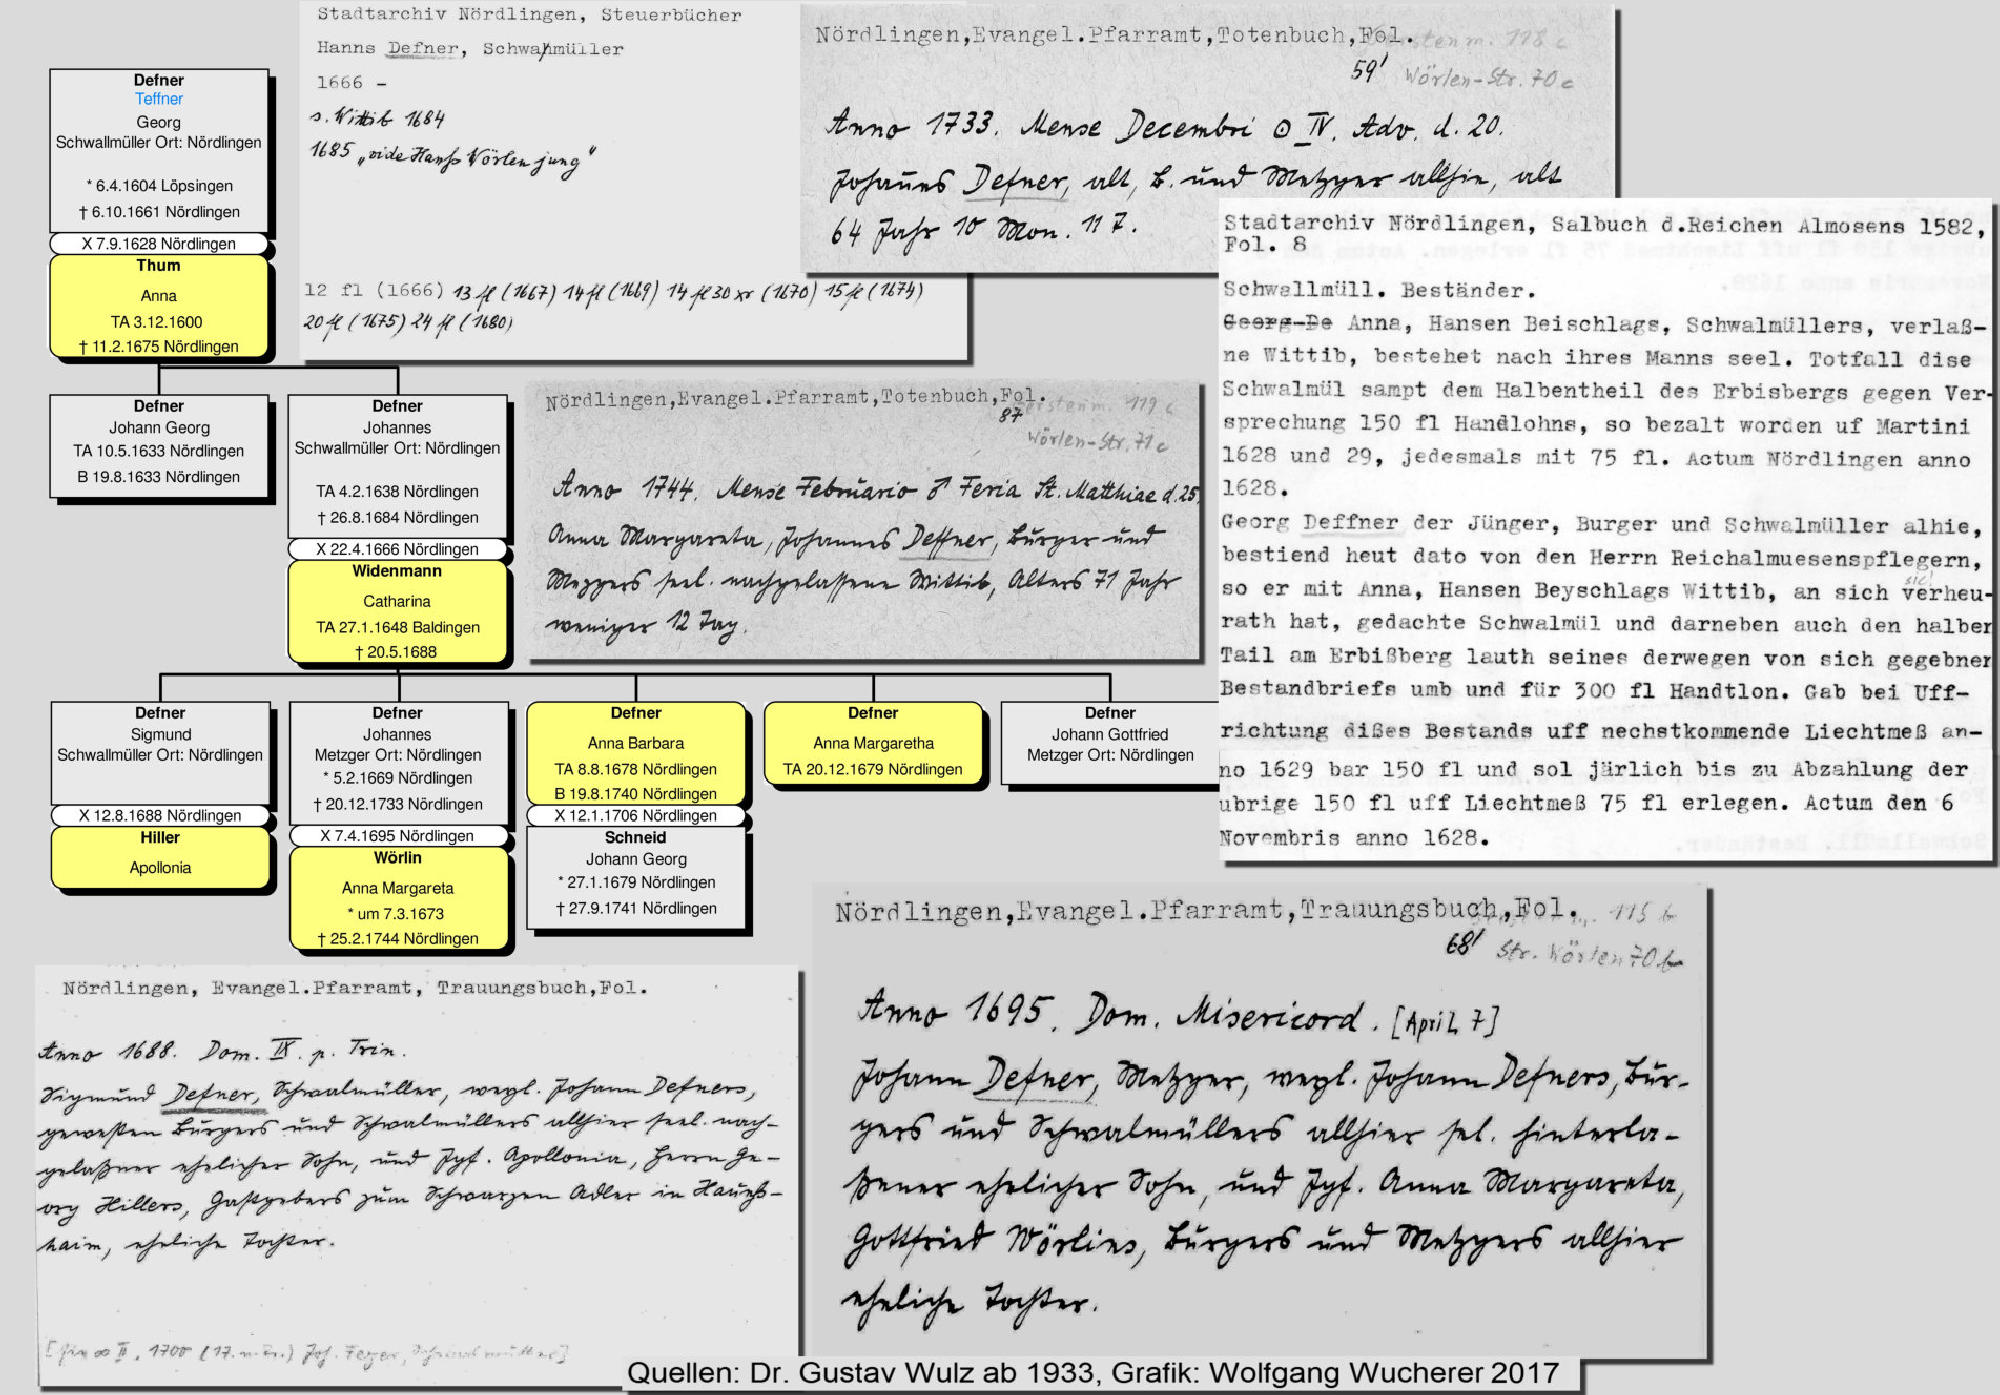 Stadtarchiv Nördlingen, Steuerbücher
Hanns Defner, Schwalmüller
1666 -
s. Wittib 1684
1685 „vide Hanß Wörlen jung"
12 fl (1666) 13 fl (1667) 14 fl (1669) 14 fl 30 xr (1670) 15 fl (1674)
20 fl (1675) 24 fl (1680)
Nördlingen,Evangel.Pfarramt,Totenbuch,Fol.
59' Wörlen-Str. 70 c
Anno 1733. Mense Decembri ☉ IV. Adv. d. 20.
Johannes Defner, alt, B. und Metzger allhie, alt
64 Jahr 10 Mon. 11 T.
Stadtarchiv Nördlingen, Salbuch d.Reichen Almosens 1582,
Fol. 8
Schwallmüll. Beständer.
Georg De Anna, Hansen Beischlags, Schwalmüllers, verlaß-
ne Wittib, bestehet nach ihres Manns seel. Totfall dise
Schwalmül sampt dem Halbentheil des Erbisbergs gegen Ver-
sprechung 150 fl Handlohns, so bezalt worden uf Martini
1628 und 29, jedesmals mit 75 fl. Actum Nördlingen anno
1628.
Georg Deffner der Jünger, Burger und Schwalmüller alhie,
bestiend heut dato von den Herrn Reichalmuesenspflegern,
sic!
so er mit Anna, Hansen Beyschlags Wittib, an sich verheu-
rath hat, gedachte Schwalmül und darneben auch den halben
Tail am Erbißberg lauth seines derwegen von sich gegebner
Bestandbriefs umb und für 300 fl Handtlon. Gab bei Uff-
richtung dißes Bestands uff nechstkommende Liechtmeß an-
no 1629 bar 150 fl und sol järlich bis zu Abzahlung der
ubrige 150 fl uff Liechtmeß 75 fl erlegen. Actum den 6
Novembris anno 1628.
Defner
Teffner
Georg
Schwallmüller Ort: Nördlingen
* 6.4.1604 Löpsingen
† 6.10.1661 Nördlingen
X 7.9.1628 Nördlingen
Thum
Anna
TA 3.12.1600
† 11.2.1675 Nördlingen
Defner
Johann Georg
TA 10.5.1633 Nördlingen
B 19.8.1633 Nördlingen
Defner
Johannes
Schwallmüller Ort: Nördlingen
TA 4.2.1638 Nördlingen
† 26.8.1684 Nördlingen
X 22.4.1666 Nördlingen
Widenmann
Catharina
TA 27.1.1648 Baldingen
† 20.5.1688
Nördlingen,Evangel.Pfarramt,Totenbuch,Fol.
87 Wörlen-Str. 71 c
Anno 1744. Mense Februario ♂ Feria St. Matthiae d. 25.
Anna Margareta, Johannes Deffner, Burger und
Mezgers seel. nachgelassene Wittib, Alters 71 Jahr
weniger 12 Tag.
Defner
Sigmund
Schwallmüller Ort: Nördlingen
X 12.8.1688 Nördlingen
Hiller
Apollonia
Defner
Johannes
Metzger Ort: Nördlingen
* 5.2.1669 Nördlingen
† 20.12.1733 Nördlingen
X 7.4.1695 Nördlingen
Wörlin
Anna Margareta
* um 7.3.1673
† 25.2.1744 Nördlingen
Defner
Anna Barbara
TA 8.8.1678 Nördlingen
B 19.8.1740 Nördlingen
X 12.1.1706 Nördlingen
Schneid
Johann Georg
* 27.1.1679 Nördlingen
† 27.9.1741 Nördlingen
Defner
Anna Margaretha
TA 20.12.1679 Nördlingen
Defner
Johann Gottfried
Metzger Ort: Nördlingen
Nördlingen, Evangel.Pfarramt, Trauungsbuch,Fol.
Anno 1688. Dom. IX. p. Trin.
Sigmund Defner, Schwalmüller, weyl. Johann Defners,
geweßten Burgers und Schwalmüllers allhier seel. nach-
gelaßner ehelicher Sohn, und Jgf. Apollonia, Herrn Ge-
org Hillers, Gastgebers zum Schwarzen Adler in Haunß-
haim, eheliche Tochter.
Nördlingen,Evangel.Pfarramt,Trauungsbuch,Fol. 115 b
68' Str. Wörlen 70 b
Anno 1695. Dom. Misericord. [April 7]
Johann Defner, Metzger, weyl. Johann Defners, Bur-
gers und Schwalmüllers allhier sel. hinterla-
ßener ehelicher Sohn, und Jgf. Anna Margareta,
Gottfried Wörlins, Burgers und Metzgers allhier
eheliche Tochter.
Quellen: Dr. Gustav Wulz ab 1933, Grafik: Wolfgang Wucherer 2017